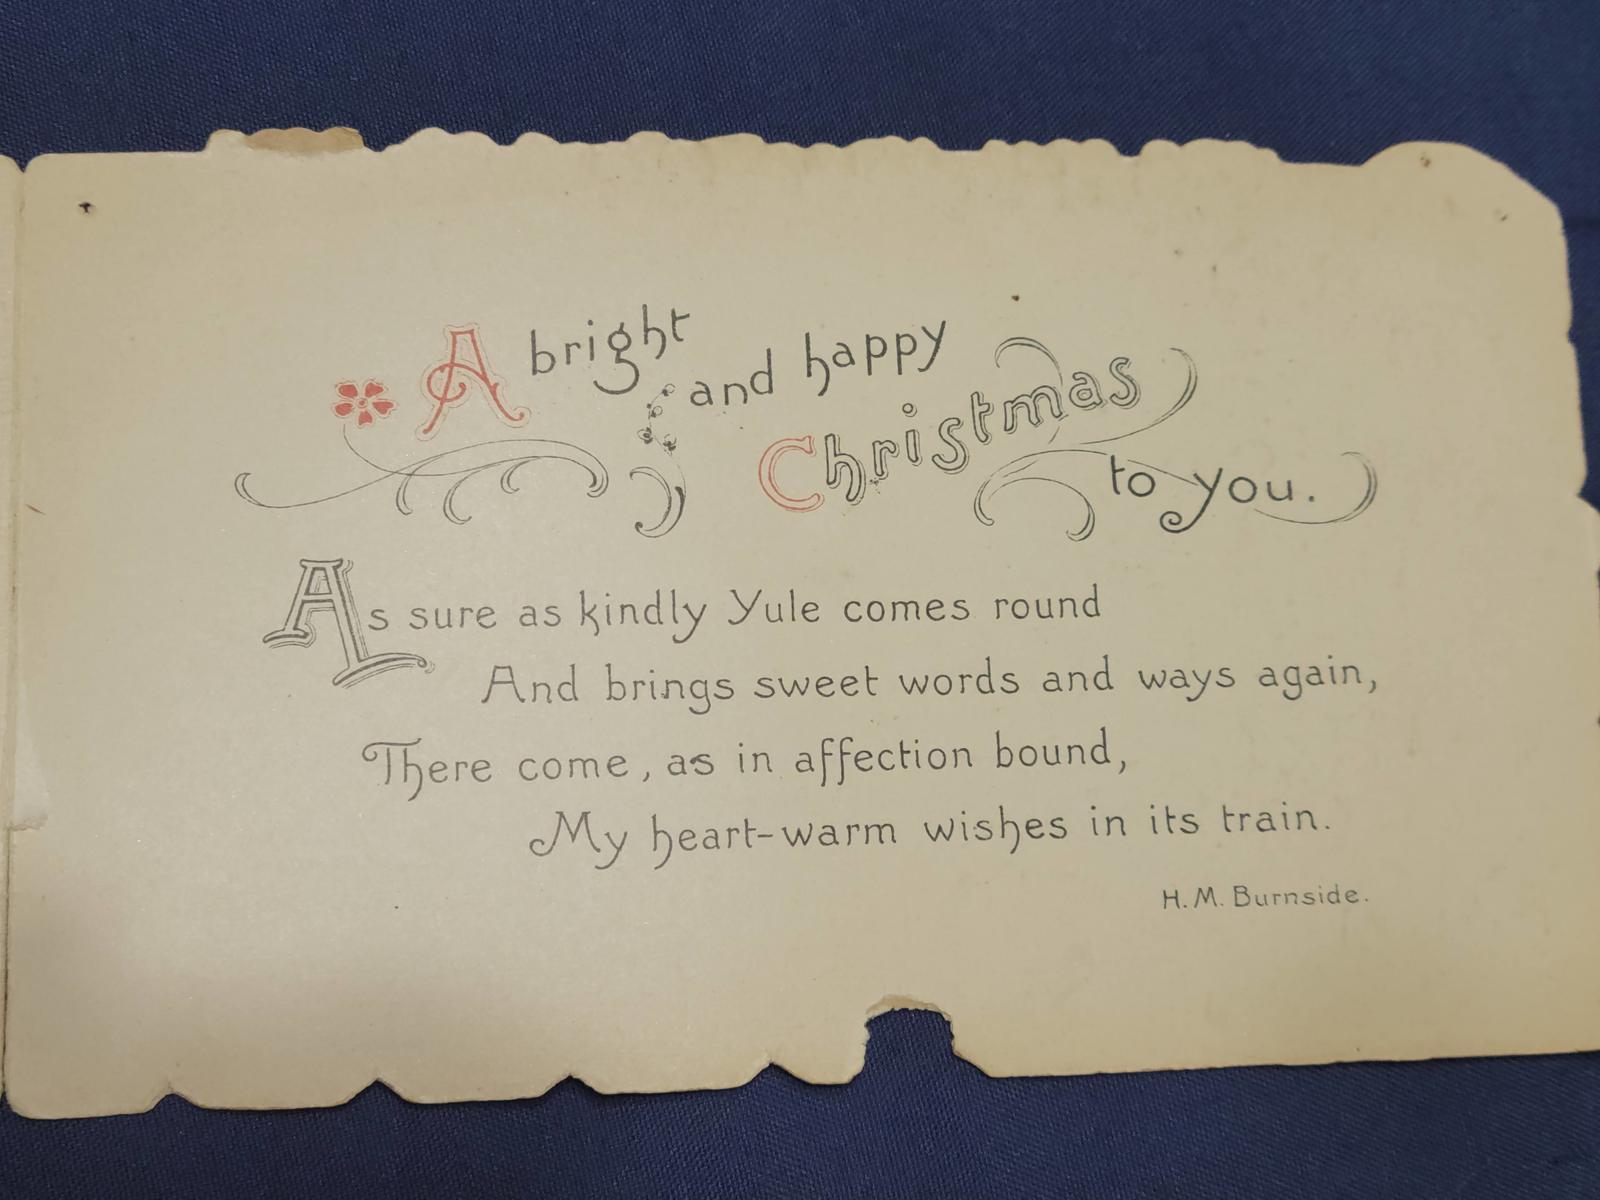 A bright and happy
Christmas
to you.
As sure as kindly Yule comes round
And brings sweet words and ways again,
There come, as in affection bound,
My heart-warm wishes in its train.
H. M. Burnside.